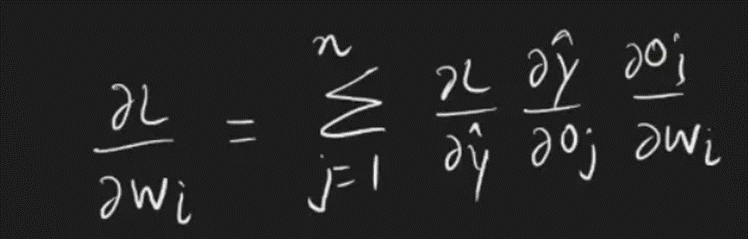 ∂L/∂wᵢ = ∑ⱼ₌₁ⁿ ∂L/∂ŷ ∂ŷ/∂Oⱼ ∂Oⱼ/∂wᵢ